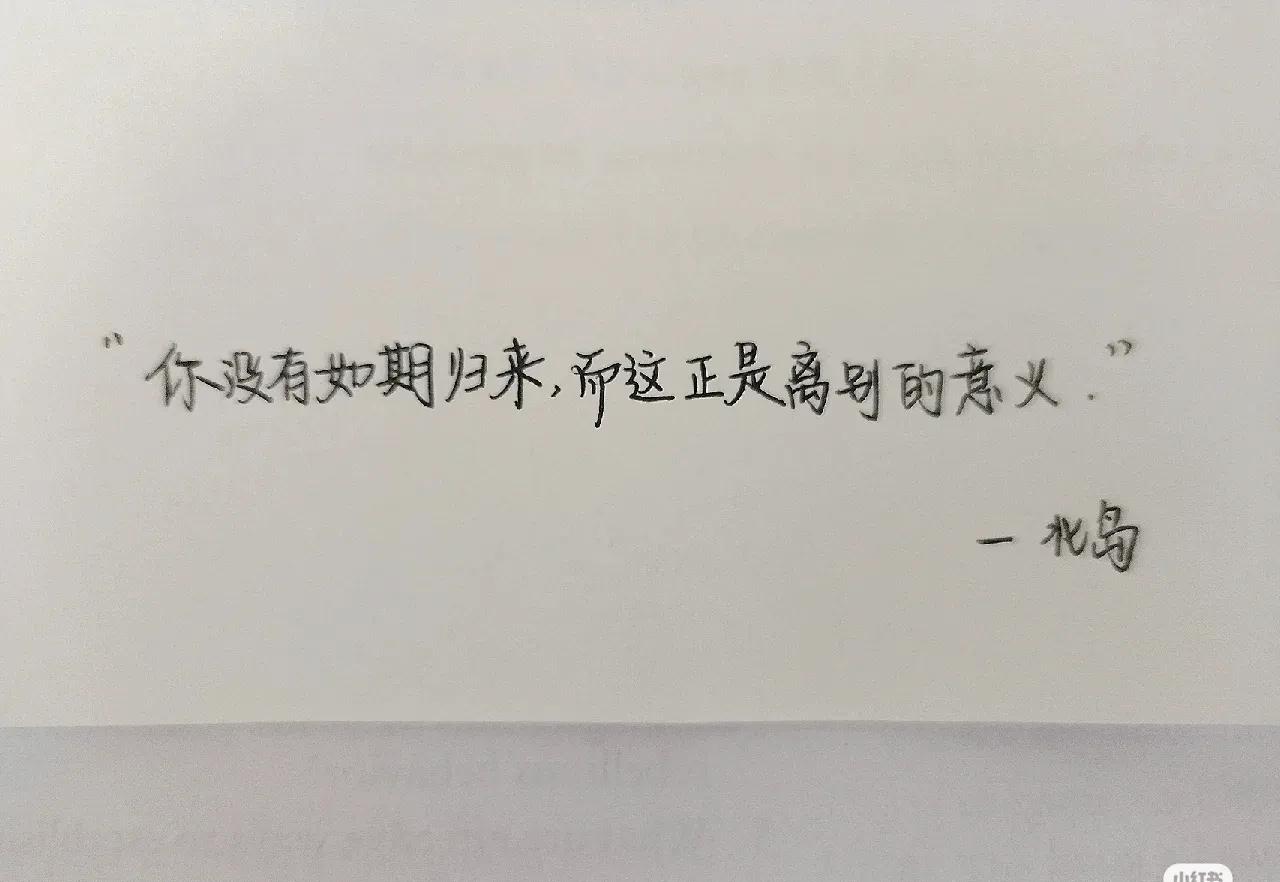 “你没有如期归来,而这正是离别的意义.”
— 北岛
小红书